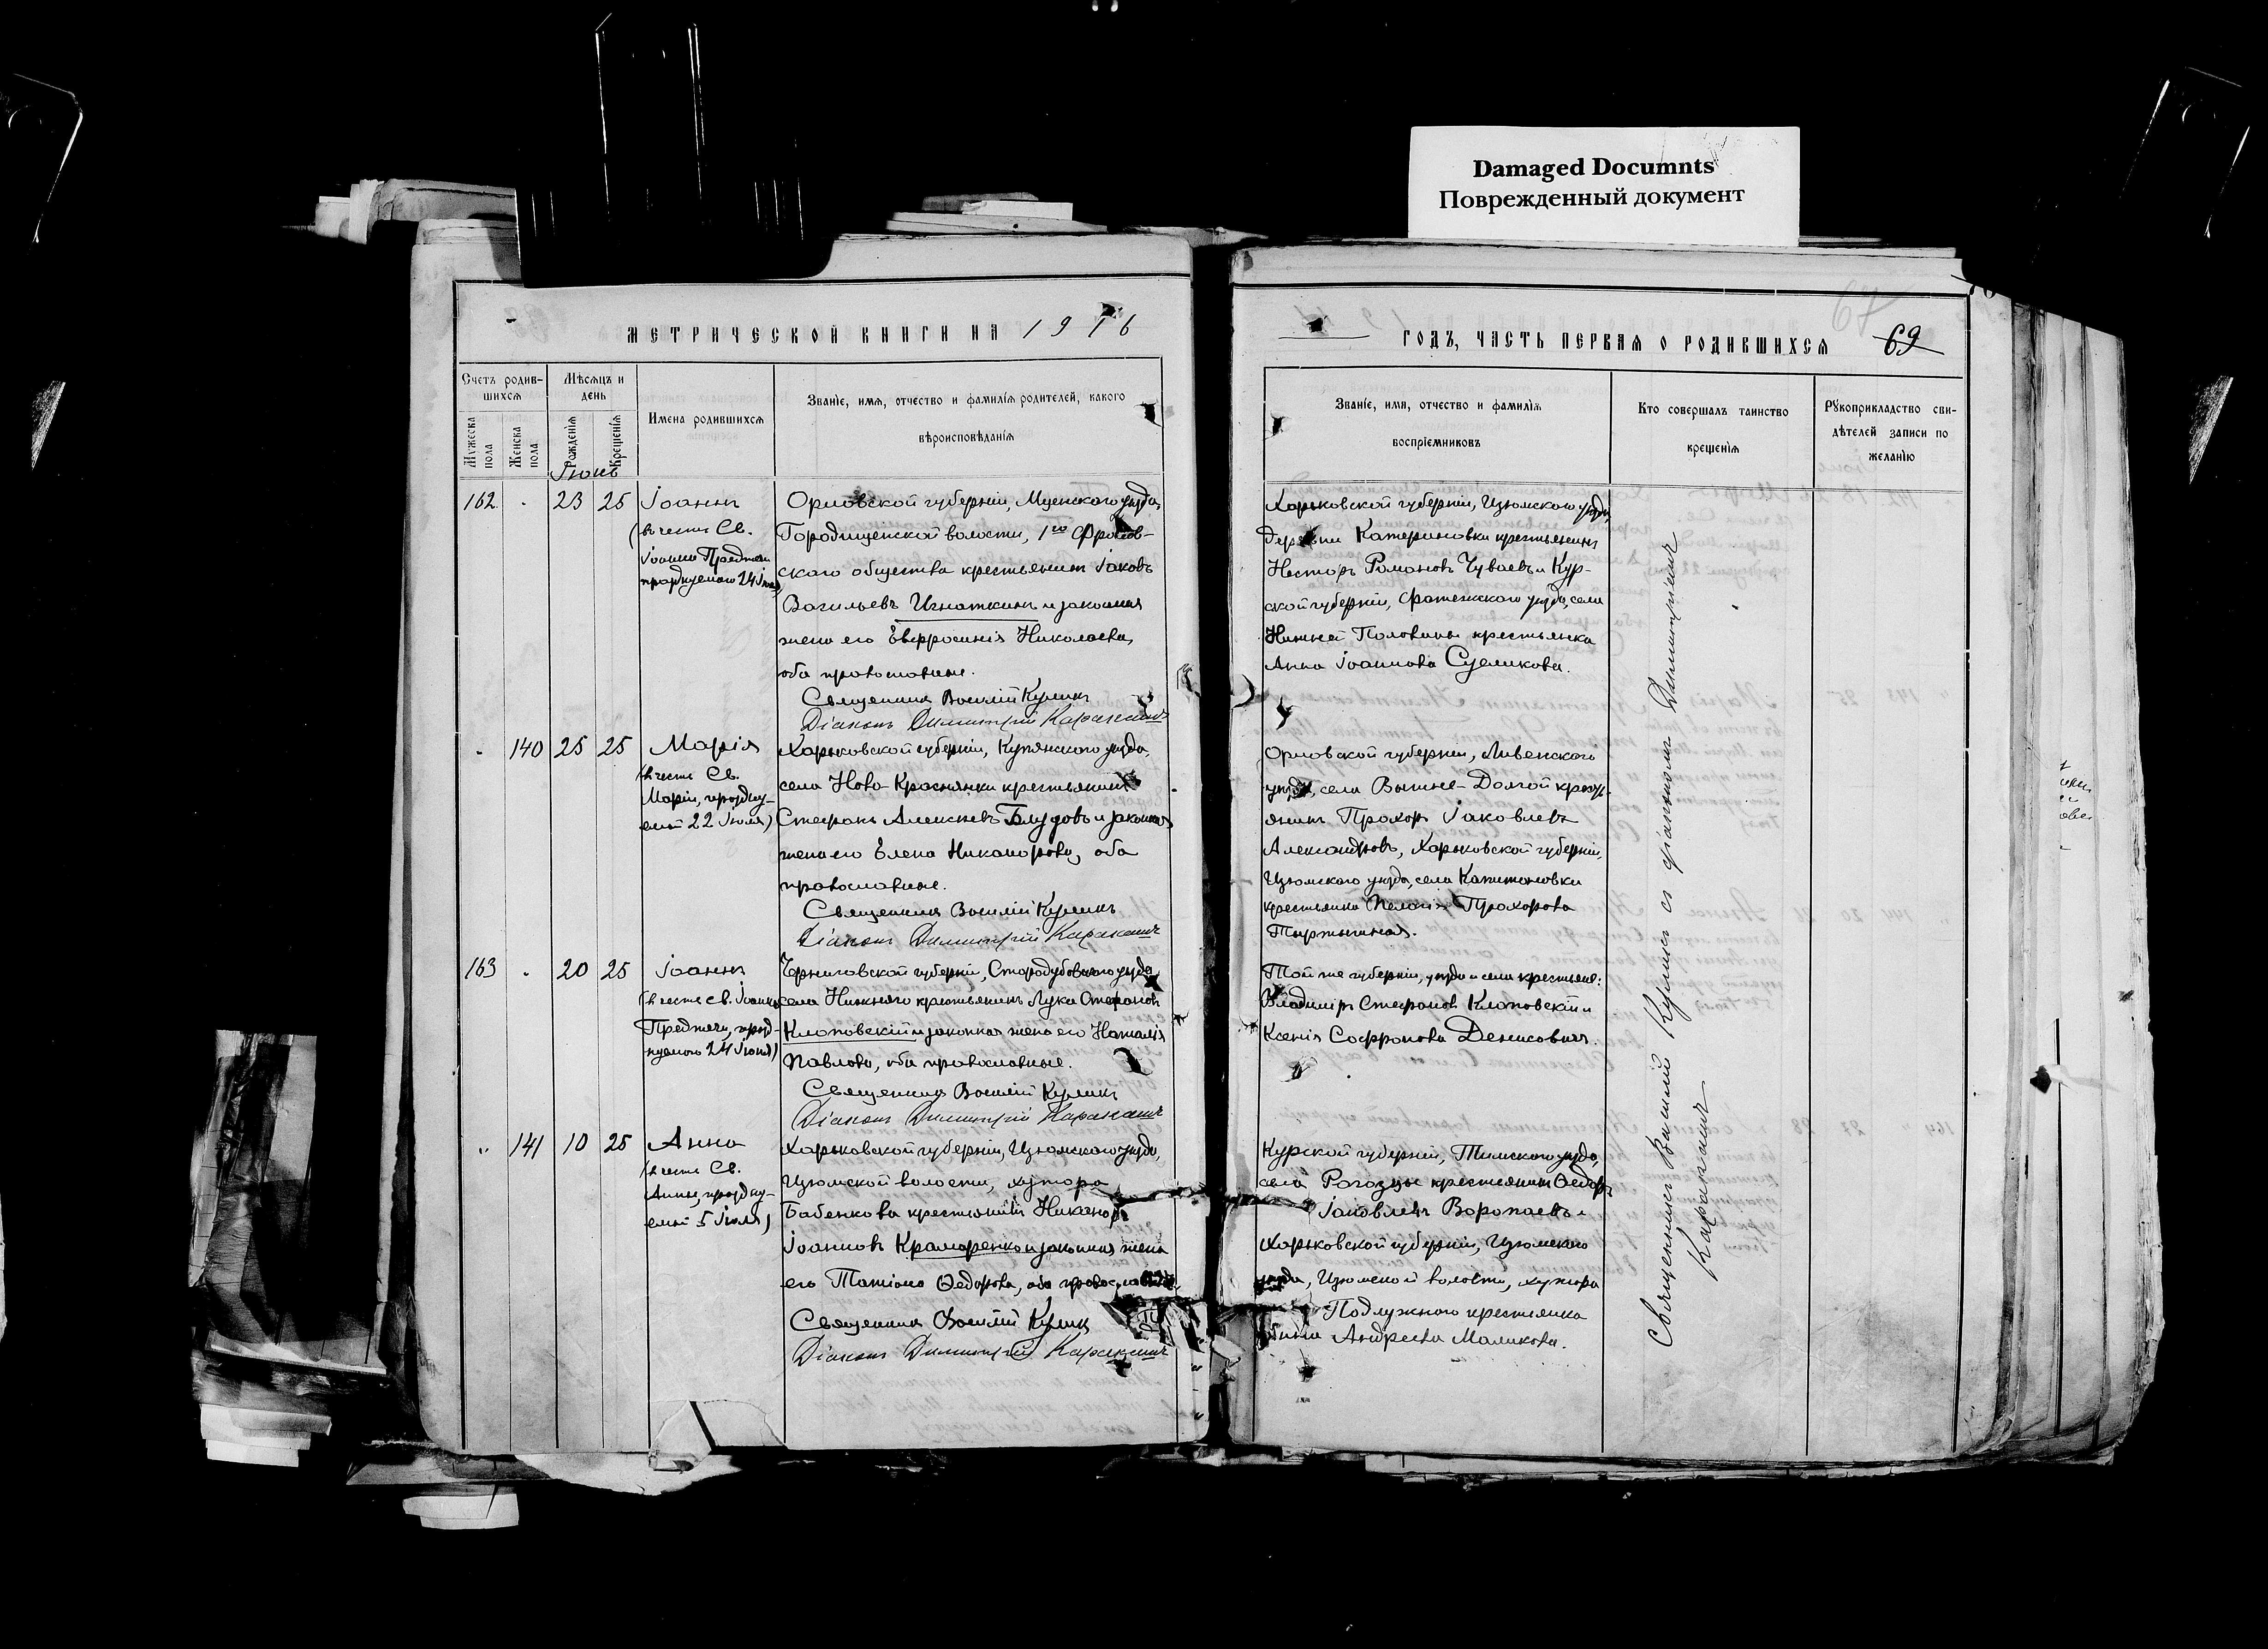 Damaged Documnts
Поврежденный документ
МЕТРИЧЕСКОЙ КНИГИ НА 1916
Счетъ родив-
шихся
Мѣсяцъ и
день
Мужеска
пола
Женска
пола
Рожденія
Крещенія
Имена родившихся
Званіе, имя, отчество и фамилія родителей, какого
вѣроисповѣданія
Іюнь
162. 23 25 Іоаннъ
(въ честь Св.
Іоанна Предтечи
празднуемаго 24 Іюня)
Орловской губерніи, Мценскаго уѣзда,
Городищенской волости, 1го
скаго общества крестьянинъ Іаковъ
Васильевъ Игнаткинъ и законная
жена его Евфросинія Николаева,
оба православные.
Священникъ Василій Куликъ
Діаконъ Димитрій
140 25 25 Марія
(въ честь Св.
Маріи, праздну-
емой 22 Іюля)
Харьковской губерніи, Купянскаго уѣзда,
села Ново-Краснянки крестьянинъ
Стефанъ Алексѣевъ Блудовъ и законная
жена его Елена Никанорова, оба
православные.
Священникъ Василій Куликъ
Діаконъ Димитрій
163 20 25 Іоаннъ
(въ честь св. Іоанна
Предтечи, празд-
нуемаго 24 Іюня)
Черниговской губерніи, Стародубовскаго уѣзда
села Нижняго крестьянинъ Лука Стефановъ
Клоповскій и законная жена его Наталія
Павлова, оба православные.
Священникъ Василій Куликъ
Діаконъ Димитрій
141 10 25 Анна
(въ честь Св.
Анны, праздну-
емой 5 Іюля)
Харьковской губерніи, Изюмскаго уѣзда,
Изюмской волости, хутора
Бабенкова крестьянинъ Никаноръ
Іоанновъ Краморенко и законная жена
его Татіана Ѳедорова, оба православные.
Священникъ Василій Куликъ
Діаконъ Димитрій
ГОДЪ, ЧАСТЬ ПЕРВАЯ О РОДИВШИХСЯ
67
69
Званіе, имя, отчество и фамилія
воспріемниковъ
Кто совершалъ таинство
крещенія
Рукоприкладство сви-
дѣтелей записи по
желанію
Харьковской губерніи, Изюмскаго уѣзда,
деревни Катериновки крестьянинъ
Несторъ Романовъ Чуваевъ и Кур-
ской губерніи, Фатежскаго уѣзда, села
Нижней Половины крестьянка
Анна Іоаннова Суеликова.
Орловской губерніи, Ливенскаго
уѣзда, села Вышне-Долгой крест-
янинъ Прохоръ Іаковлевъ
Александровъ, Харьковской губерніи,
Изюмскаго уѣзда, села Капитоновки
крестьянка Пелагія Прохорова
Той же губерніи, уѣзда и села крестьяне:
Владиміръ Стефановъ Клоповскій и
Ксенія Софронова Денисович.
Курской губерніи, Тимскаго уѣзда,
села Рогозцы крестьянинъ Ѳедоръ
Іаковлевъ Воропаевъ и
Харьковской губерніи, Изюмскаго
уѣзда, Изюмской волости, хутора
Подлужнаго крестьянка
Андреева Маликова.
Священникъ Василій Куликъ съ діакономъ Димитріемъ